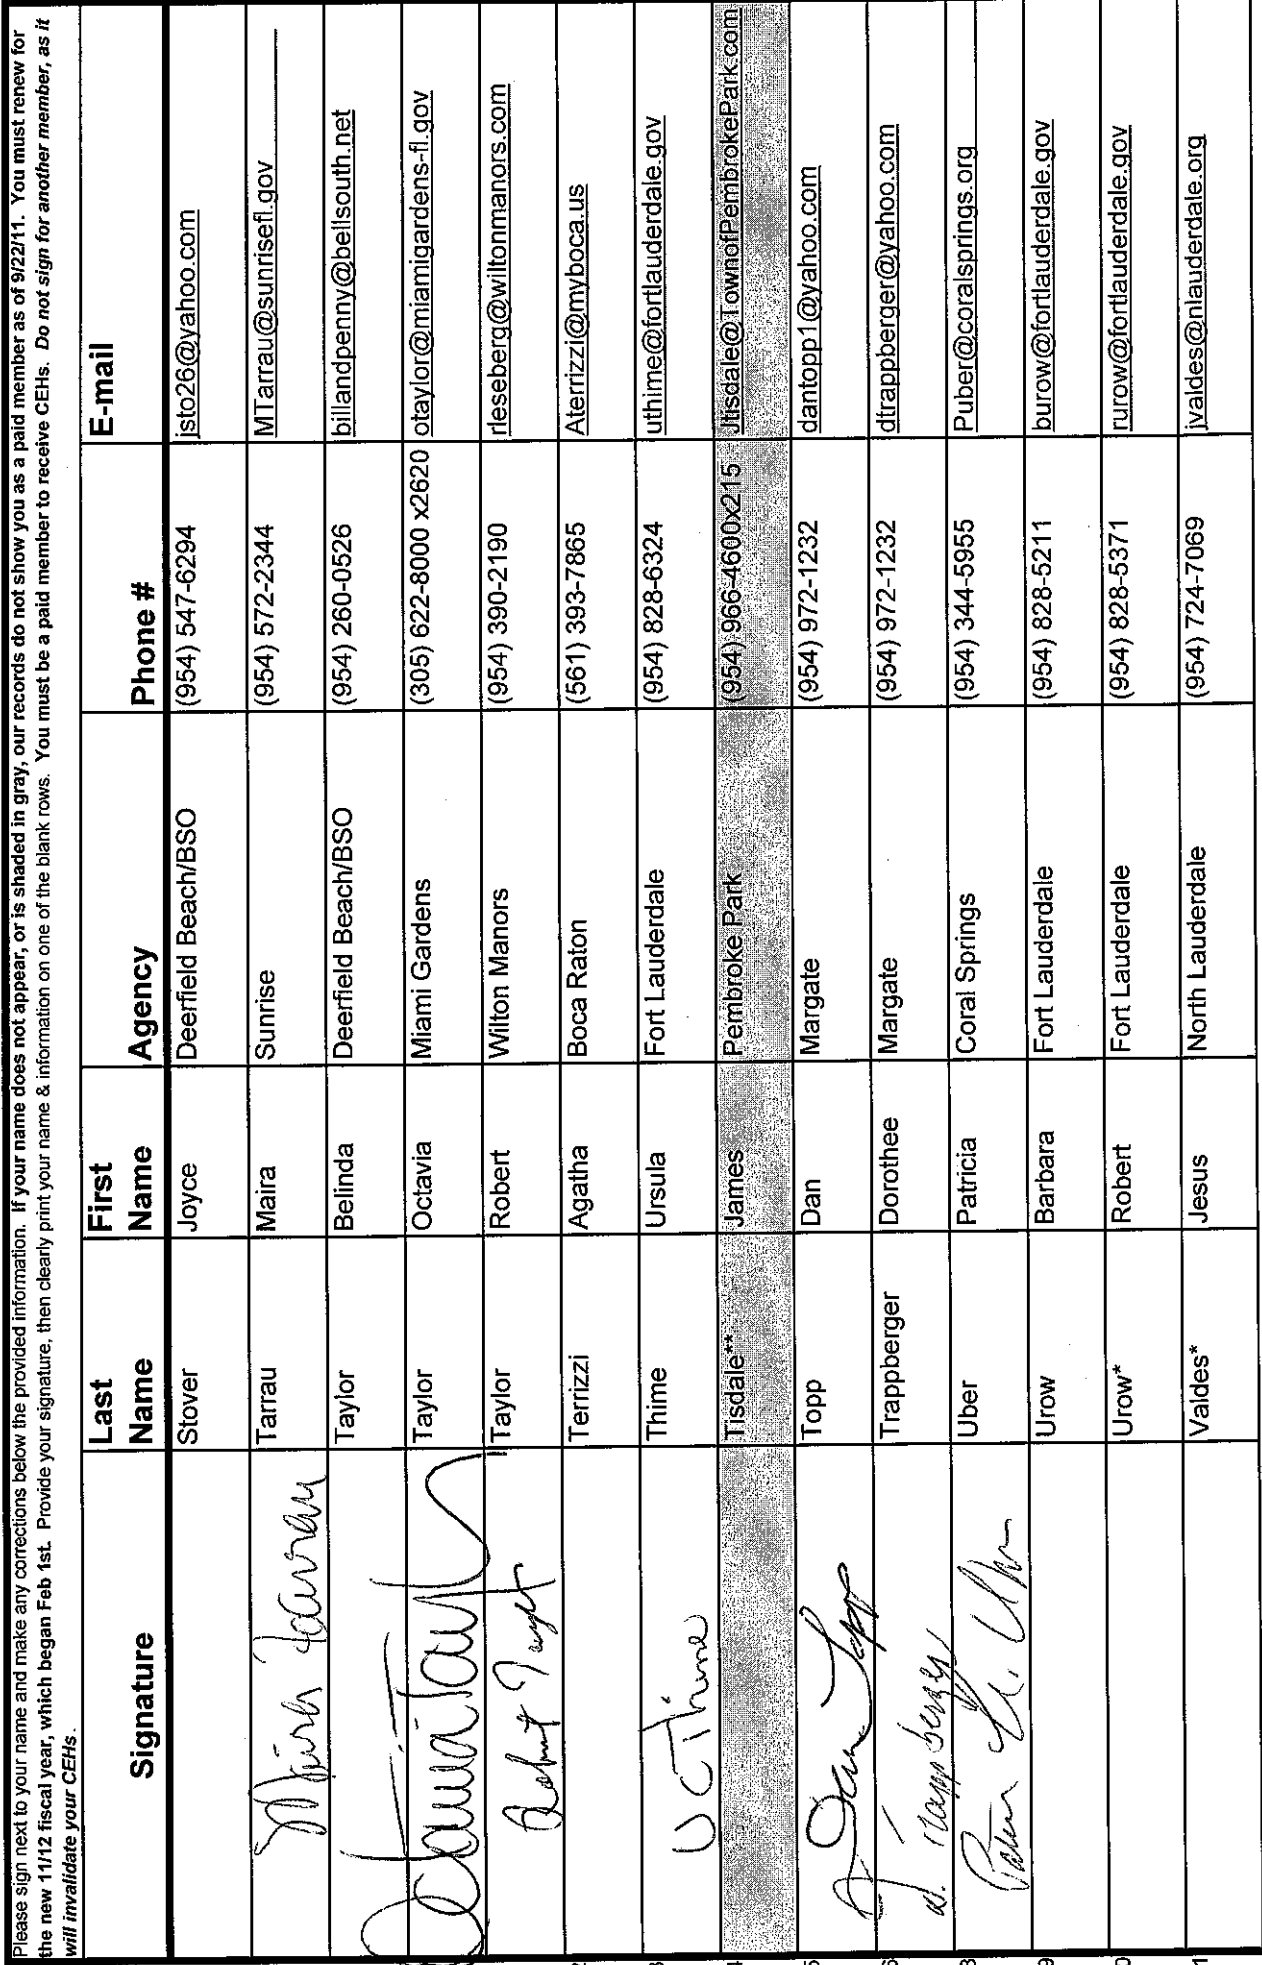 Please sign next to your name and make any corrections below the provided information. If your name does not appear, or is shaded in gray, our records do not show you as a paid member as of 9/22/11. You must renew for
the new 11/12 fiscal year, which began Feb 1st. Provide your signature, then clearly print your name & information on one of the blank rows. You must be a paid member to receive CEHs. Do not sign for another member, as it
will invalidate your CEHs.
Signature Last Name First Name Agency Phone # E-mail
Stover Joyce Deerfield Beach/BSO (954) 547-6294 jsto26@yahoo.com
Maira Tarrau Tarrau Maira Sunrise (954) 572-2344 MTarrau@sunrisefl.gov
Taylor Belinda Deerfield Beach/BSO (954) 260-0526 billandpenny@bellsouth.net
Octavia Taylor Taylor Octavia Miami Gardens (305) 622-8000 x2620 otaylor@miamigardens-fl.gov
Robert Taylor Taylor Robert Wilton Manors (954) 390-2190 rleseberg@wiltonmanors.com
2 Terrizzi Agatha Boca Raton (561) 393-7865 Aterrizzi@myboca.us
3 U C Thime Thime Ursula Fort Lauderdale (954) 828-6324 uthime@fortlauderdale.gov
4 Tisdale** James Pembroke Park (954) 966-4600x215 Jtisdale@TownofPembrokePark.com
5 Dan Topp Topp Dan Margate (954) 972-1232 dantopp1@yahoo.com
6 D. Trappberger Trappberger Dorothee Margate (954) 972-1232 dtrappberger@yahoo.com
8 Uber Patricia Coral Springs (954) 344-5955 Puber@coralsprings.org
9 Urow Barbara Fort Lauderdale (954) 828-5211 burow@fortlauderdale.gov
0 Urow* Robert Fort Lauderdale (954) 828-5371 rurow@fortlauderdale.gov
1 Valdes* Jesus North Lauderdale (954) 724-7069 jvaldes@nlauderdale.org